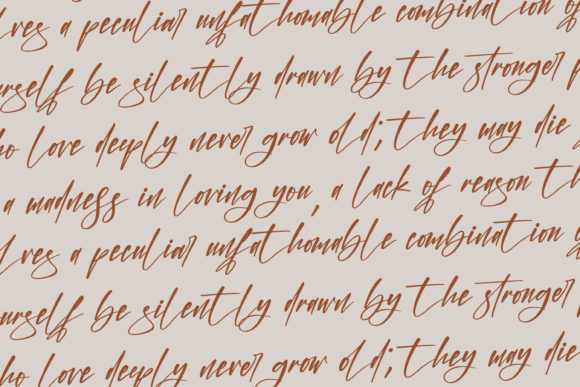 lves a peculiar unfathomable combination of
urself be silently drawn by the stronger p
ho love deeply never grow old; they may die
a madness in loving you, a lack of reason th
lves a peculiar unfathomable combination
urself be silently drawn by the stronger
ho love deeply never grow old; they may die